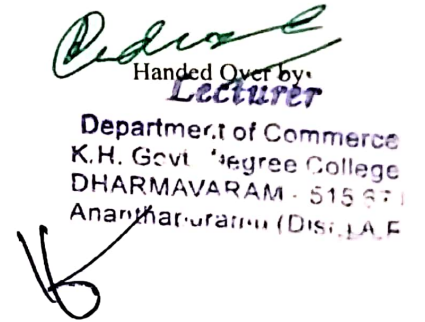 Handed Over by:
Lecturer
Department of Commerce
K.H. Govt Degree College
DHARMAVARAM - 515 671
(Dist.) A.P